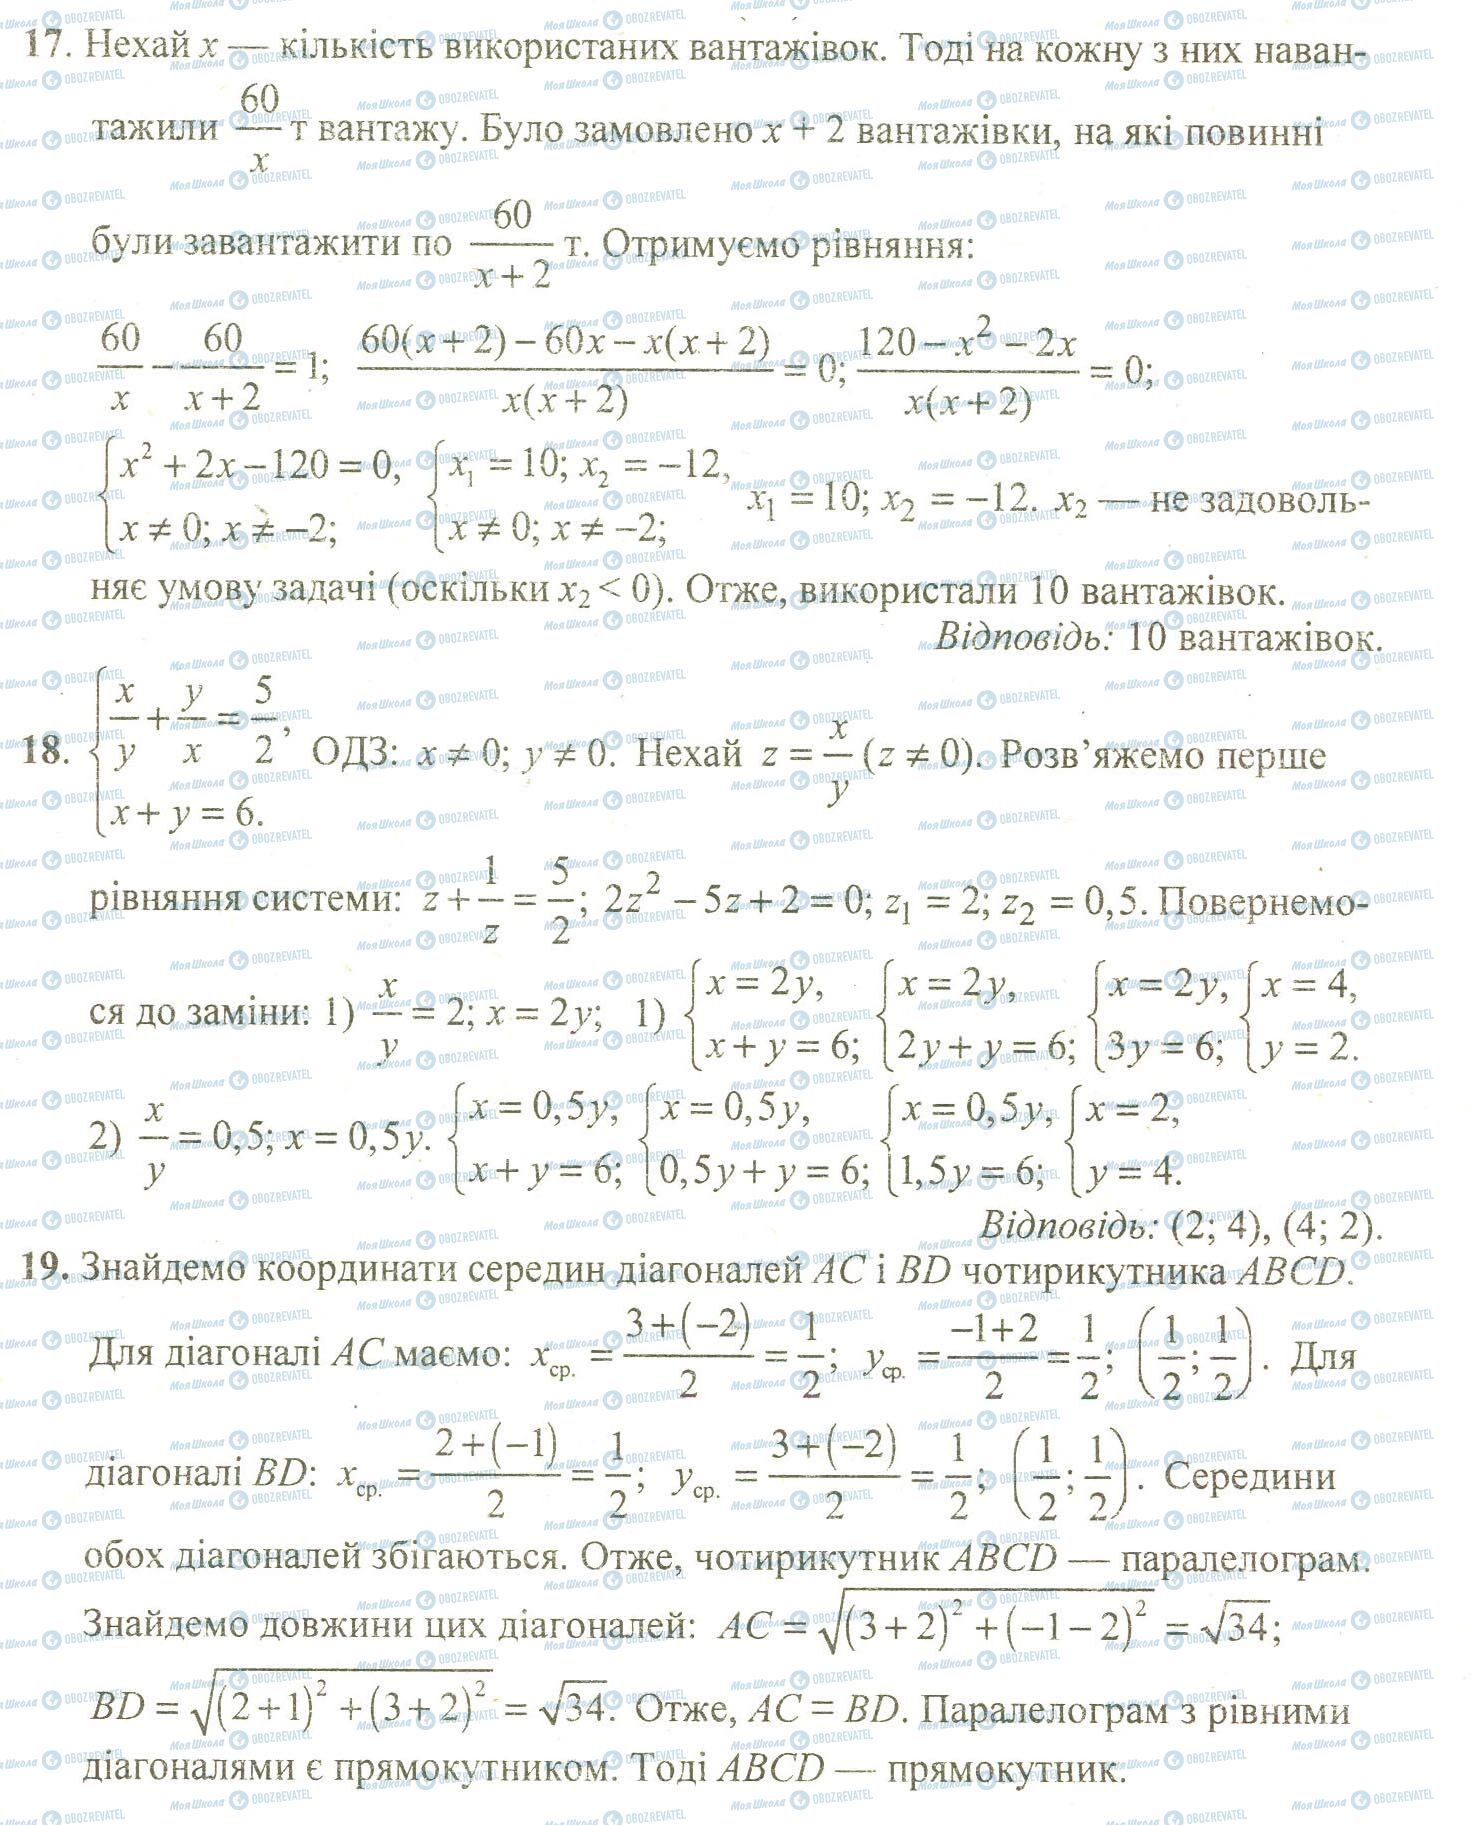 17. Нехай x — кількість використаних вантажівок. Тоді на кожну з них наван-
тажили 60/x т вантажу. Було замовлено x + 2 вантажівки, на які повинні
були завантажити по 60/(x + 2) т. Отримуємо рівняння:
60/x − 60/(x + 2) = 1; (60(x + 2) − 60x − x(x + 2))/(x(x + 2)) = 0; (120 − x² − 2x)/(x(x + 2)) = 0;
{x² + 2x − 120 = 0, x ≠ 0; x ≠ −2; {x₁ = 10; x₂ = −12, x ≠ 0; x ≠ −2; x₁ = 10; x₂ = −12. x₂ — не задоволь-
няє умову задачі (оскільки x₂ < 0). Отже, використали 10 вантажівок.
Відповідь: 10 вантажівок.
18. {x/y + y/x = 5/2, x + y = 6. ОДЗ: x ≠ 0; y ≠ 0. Нехай z = x/y (z ≠ 0). Розв’яжемо перше
рівняння системи: z + 1/z = 5/2; 2z² − 5z + 2 = 0; z₁ = 2; z₂ = 0,5. Повернемо-
ся до заміни: 1) x/y = 2; x = 2y; 1) {x = 2y, x + y = 6; {x = 2y, 2y + y = 6; {x = 2y, 3y = 6; {x = 4, y = 2.
2) x/y = 0,5; x = 0,5y. {x = 0,5y, x + y = 6; {x = 0,5y, 0,5y + y = 6; {x = 0,5y, 1,5y = 6; {x = 2, y = 4.
Відповідь: (2; 4), (4; 2).
19. Знайдемо координати середин діагоналей AC і BD чотирикутника ABCD.
Для діагоналі AC маємо: xср. = (3 + (−2))/2 = 1/2; yср. = (−1 + 2)/2 = 1/2; (1/2; 1/2). Для
діагоналі BD: xср. = (2 + (−1))/2 = 1/2; yср. = (3 + (−2))/2 = 1/2; (1/2; 1/2). Середини
обох діагоналей збігаються. Отже, чотирикутник ABCD — паралелограм.
Знайдемо довжини цих діагоналей: AC = √((3 + 2)² + (−1 − 2)²) = √34;
BD = √((2 + 1)² + (3 + 2)²) = √34. Отже, AC = BD. Паралелограм з рівними
діагоналями є прямокутником. Тоді ABCD — прямокутник.
Моя Школа OBOZREVATEL